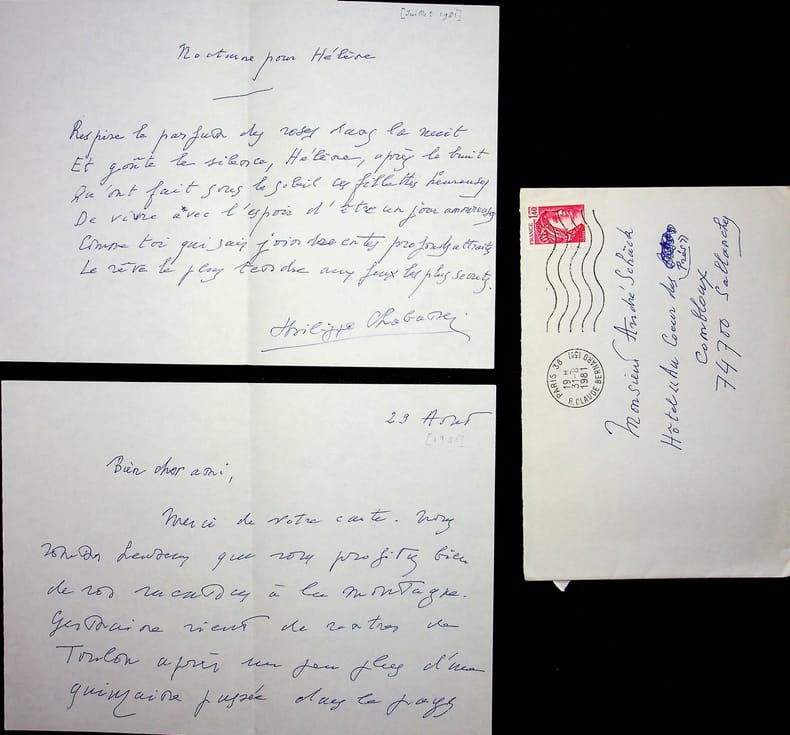 [Juillet 1981]
Nocturne pour Hélène
Respire le parfum des roses dans la nuit
Et goûte le silence, Hélène, après le bruit
Qu'ont fait sous le soleil ces fillettes heureuses
De vivre avec l'espoir d'être un jour amoureuses
Comme toi qui sais joindre en tes profonds attraits
Le rêve le plus tendre aux jeux les plus secrets.
Philippe Chabaneix
29 Août
[1981]
Bien cher ami,
Merci de votre carte. Nous
sommes heureux que vous profitiez bien
de vos vacances à la montagne.
Germaine vient de rentrer de
Toulon après un peu plus d'une
quinzaine passée dans le pays
FRANCE 1,40
PARIS 38 (5E)
19 H
31-8
1981
R. CLAUDE BERNARD
Monsieur André Schück
Hôtel "Au Coeur des
Prés"
Combloux
74700 Sallanches